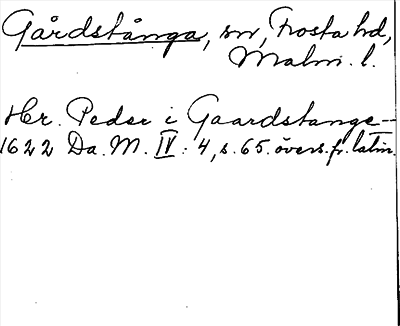 Gårdstånga, sn, Frosta hd,
Malm. l.
Hr. Peder i Gaardstange-
1622 Da. M. IV: 4, s. 65. övers. fr. latin.